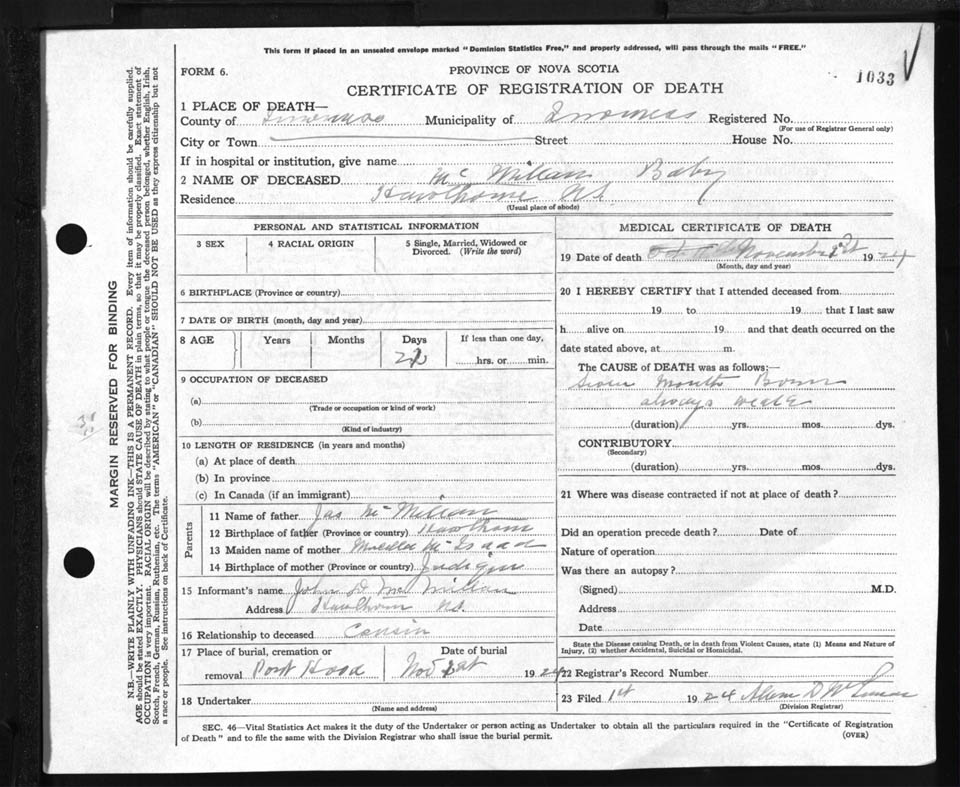 This form if placed in an unsealed envelope marked "Dominion Statistics Free," and properly addressed, will pass through the mails "FREE."
FORM 6.
PROVINCE OF NOVA SCOTIA
1033
CERTIFICATE OF REGISTRATION OF DEATH
1 PLACE OF DEATH—
County of Inverness Municipality of Inverness Registered No.
(For use of Registrar General only)
City or Town Street House No.
If in hospital or institution, give name
2 NAME OF DECEASED Mc Milian Baby
Residence Hawthorne NS
(Usual place of abode)
PERSONAL AND STATISTICAL INFORMATION
3 SEX 4 RACIAL ORIGIN 5 Single, Married, Widowed or Divorced. (Write the word)
6 BIRTHPLACE (Province or country)
7 DATE OF BIRTH (month, day and year)
8 AGE Years Months Days If less than one day,
hrs. or min.
9 OCCUPATION OF DECEASED
(a)
(Trade or occupation or kind of work)
(b)
(Kind of industry)
10 LENGTH OF RESIDENCE (in years and months)
(a) At place of death
(b) In province
(c) In Canada (if an immigrant)
Parents
11 Name of father Jas Mc Milian
12 Birthplace of father (Province or country) Hawthorn
13 Maiden name of mother Mc Isaac
14 Birthplace of mother (Province or country) Judique
15 Informant's name John D Mc Milian
Address Hawthorn NS.
16 Relationship to deceased Cousin
17 Place of burial, cremation or removal Port Hood
Date of burial Nov 1st 1924
18 Undertaker
(Name and address)
MEDICAL CERTIFICATE OF DEATH
19 Date of death November 1924
(Month, day and year)
20 I HEREBY CERTIFY that I attended deceased from
19 to 19 that I last saw
h alive on 19 and that death occurred on the
date stated above, at m.
The CAUSE of DEATH was as follows:—
Seven Month Born
always weak
(duration) yrs. mos. dys.
CONTRIBUTORY
(Secondary)
(duration) yrs. mos. dys.
21 Where was disease contracted if not at place of death?
Did an operation precede death? Date of
Nature of operation
Was there an autopsy?
(Signed) M.D.
Address
Date
State the Disease causing Death, or in death from Violent Causes, state (1) Means and Nature of
Injury, (2) whether Accidental, Suicidal or Homicidal.
22 Registrar's Record Number
23 Filed 1st 1924
(Division Registrar)
SEC. 46—Vital Statistics Act makes it the duty of the Undertaker or person acting as Undertaker to obtain all the particulars required in the "Certificate of Registration
of Death" and to file the same with the Division Registrar who shall issue the burial permit.
(OVER)
MARGIN RESERVED FOR BINDING
N.B.—WRITE PLAINLY WITH UNFADING INK—THIS IS A PERMANENT RECORD. Every item of information should be carefully supplied.
AGE should be stated EXACTLY. PHYSICIANS should STATE CAUSE OF DEATH in plain terms, so that it may be properly classified. Exact statement of
OCCUPATION is very important. RACIAL ORIGIN will be described by stating to what people or tongue the deceased person belonged, whether English, Irish,
Scotch, French, German, Russian, Ruthenian, etc. The terms "AMERICAN" or "CANADIAN" SHOULD NOT BE USED as they express citizenship but not
a race or people. See instructions on back of Certificate.